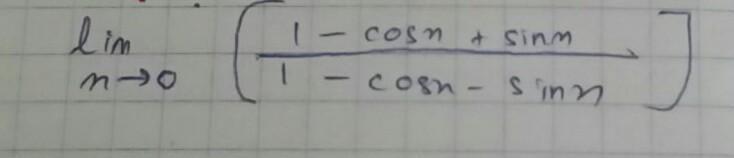 lim n→0 [ (1 - cosn + sinn) / (1 - cosn - sinn) ]